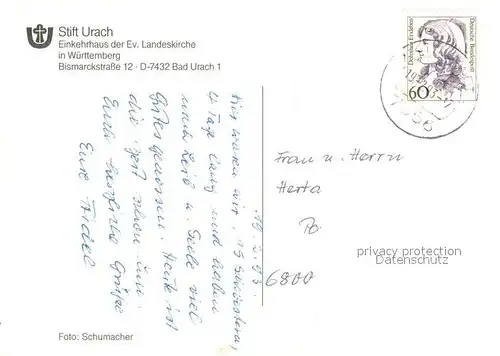 Stift Urach
Einkehrhaus der Ev. Landeskirche
in Württemberg
Bismarckstraße 12 · D-7432 Bad Urach 1
Dorothea Erxleben
Deutsche Bundespost
60
19.2.93
Hier waren wir, 15 Schwestern,
4 Tage lang und haben
nach Leib u. Seele viel
Gutes genossen. Heute ist
die Zeit schon um.
Euch herzliche Grüße
Eure Friedel
Frau u. Herrn
Herta
Po
6800
privacy protection
Datenschutz
Foto: Schumacher